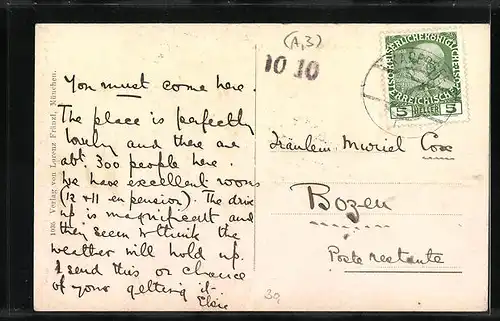 (A,3)
10 10
KAISERLICHE KÖNIGLICHE
ÖSTERREICHISCHE
5 HELLER 5
You must come here.
The place is perfectly
lovely and there are
abt. 300 people here.
We have excellent rooms
(12 + 11 en pension). The drive
up is magnificent and
they seem to think the
weather will hold up.
I send this on chance
of your getting it.
Elsie
Fräulein Muriel Cox
Bozen
Poste restante
1036 Verlag von Lorenz Fränzl, München.